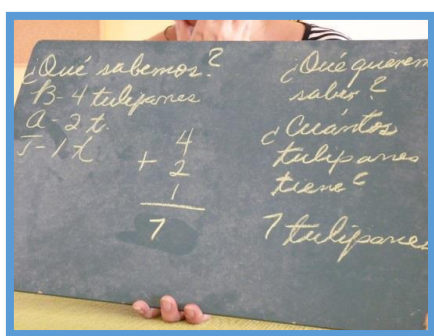 ¿Qué sabemos?
B- 4 tulipanes
a - 2 t.
J- 1 t
4
+ 2
1
7
¿Qué quierem
saber?
¿Cuántos
tulipanes
tiene?
7 tulipanes